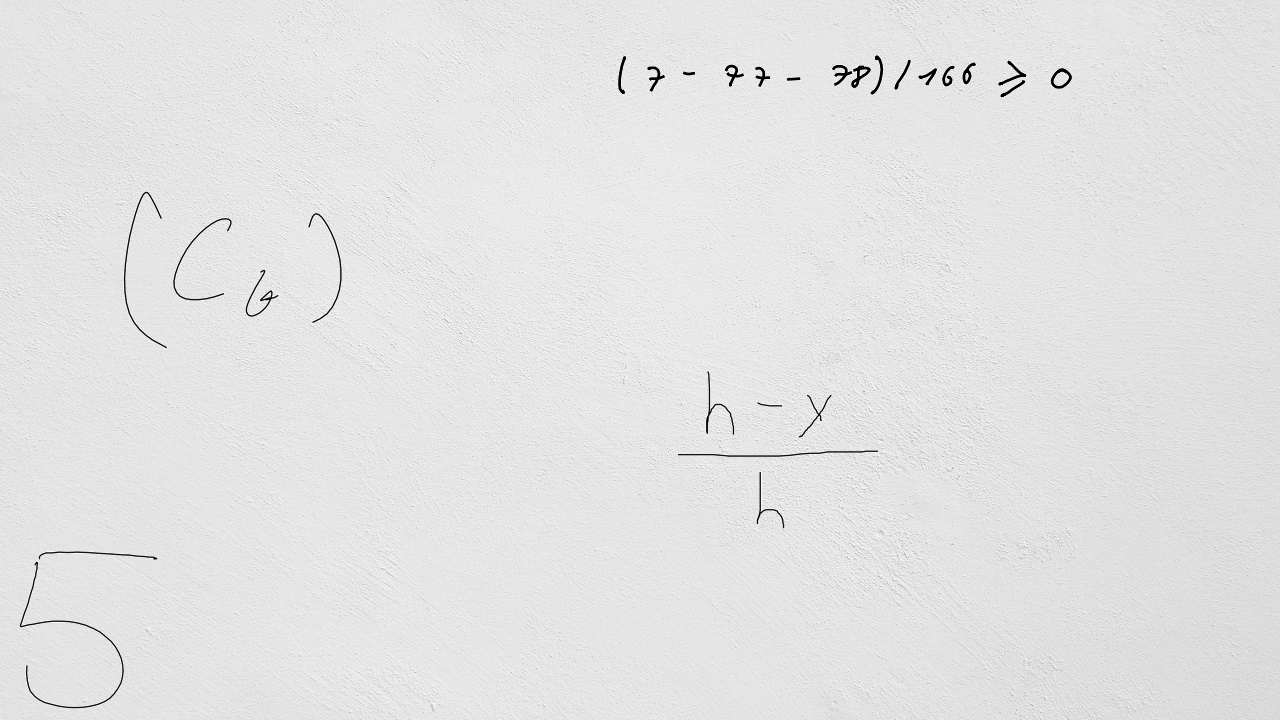 (7 - 77 - 78) / 166 ≥ 0
(C_6)
\frac{h - y}{h}
5